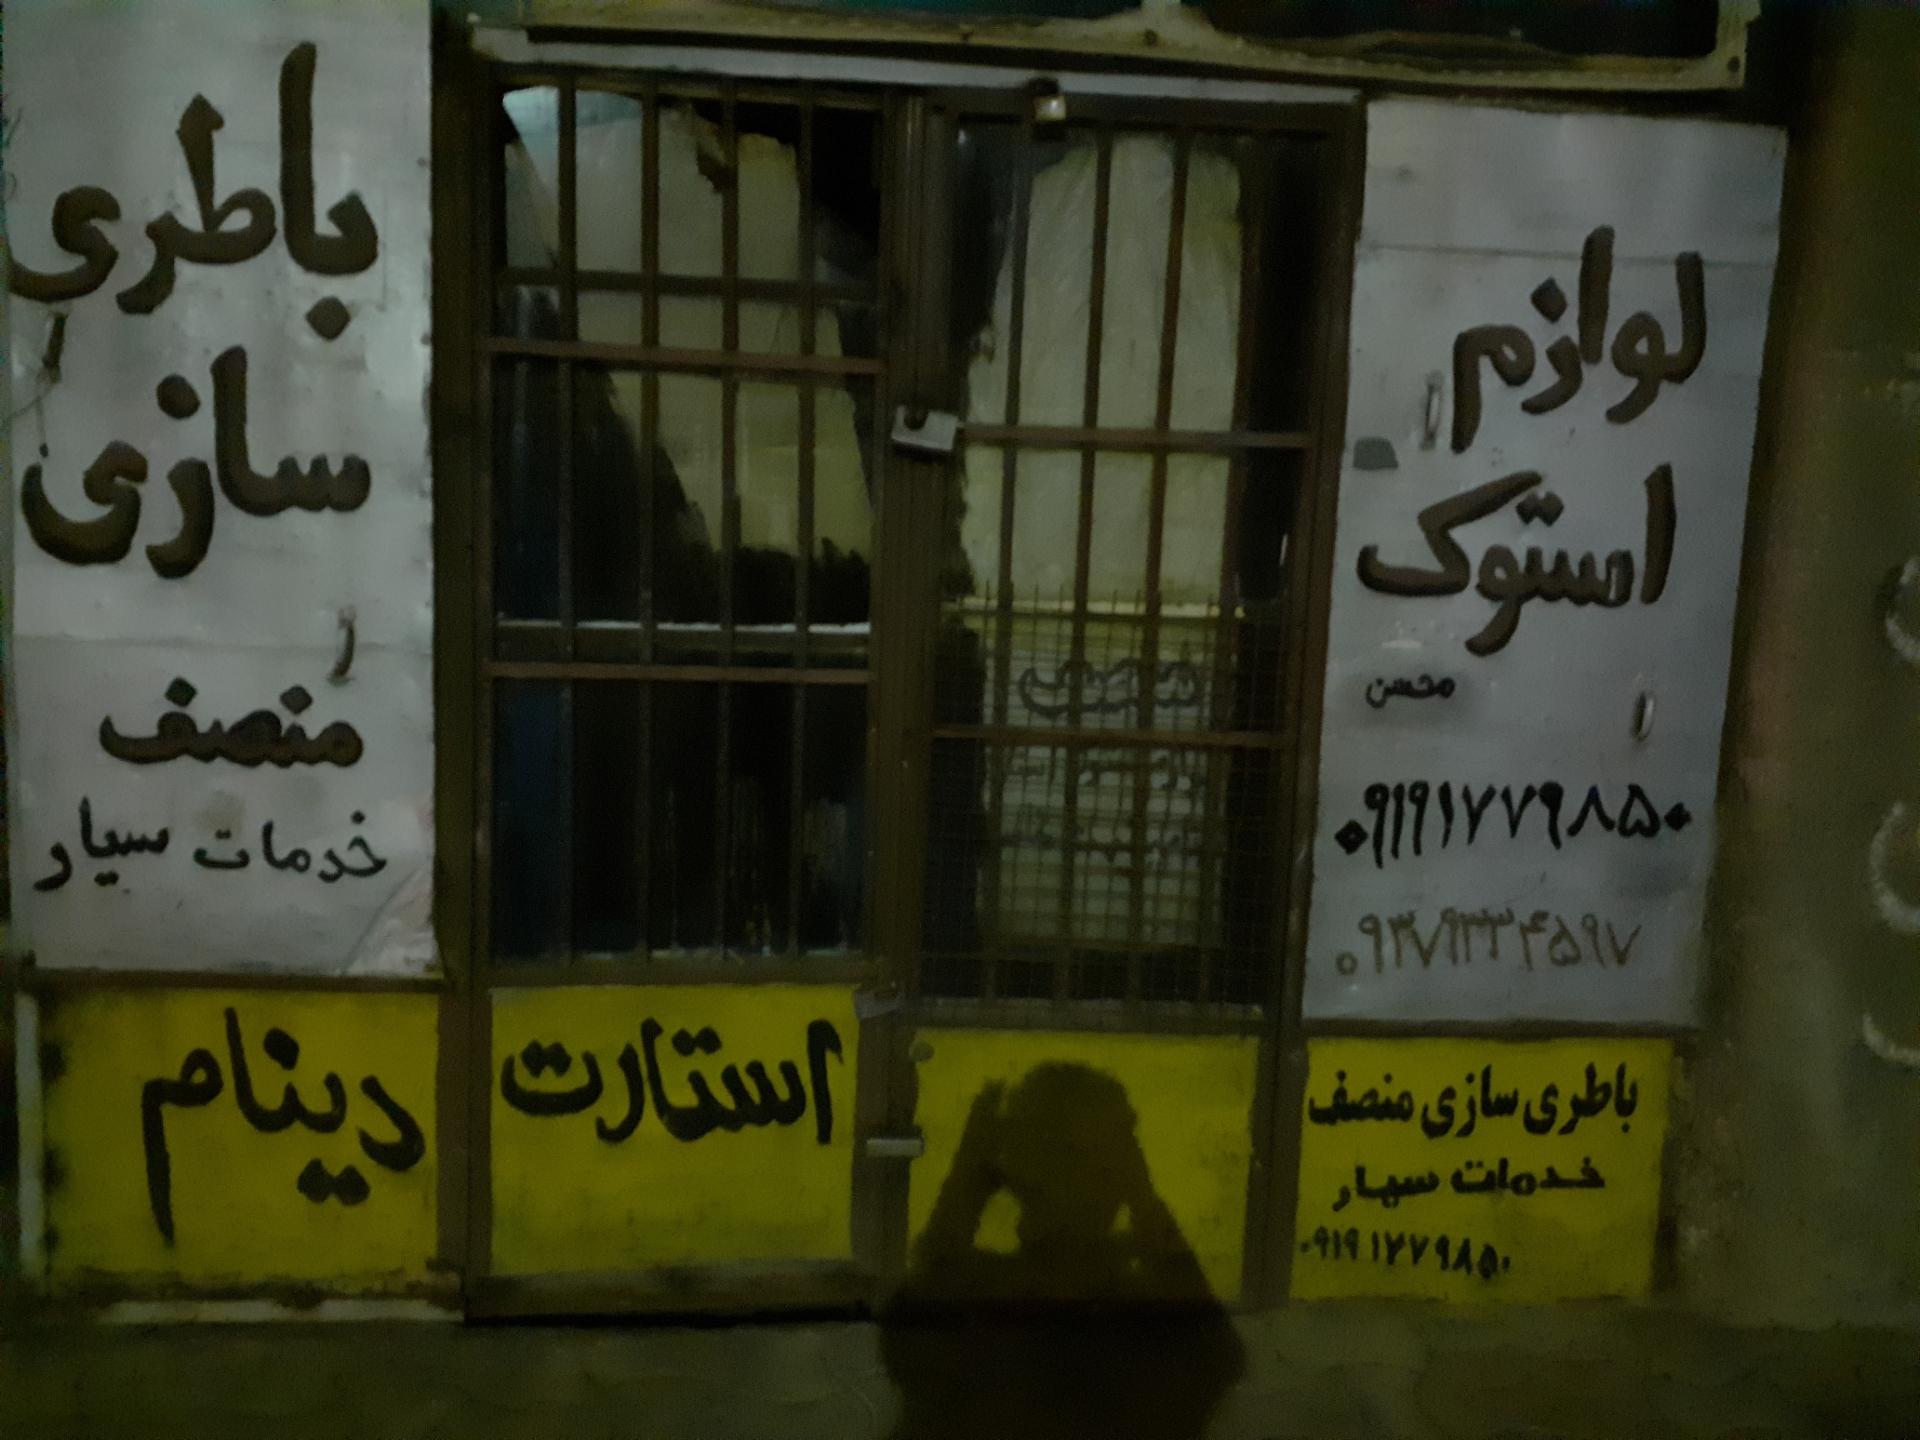 باطری
سازی
منصف
خدمات سیار
لوازم
استوک
محسن
۰۹۱۹۱۷۷۹۸۵۰
۰۹۳۷۹۳۳۴۵۹۷
دینام
استارت
باطری سازی منصف
خدمات سیار
۰۹۱۹۱۷۷۹۸۵۰